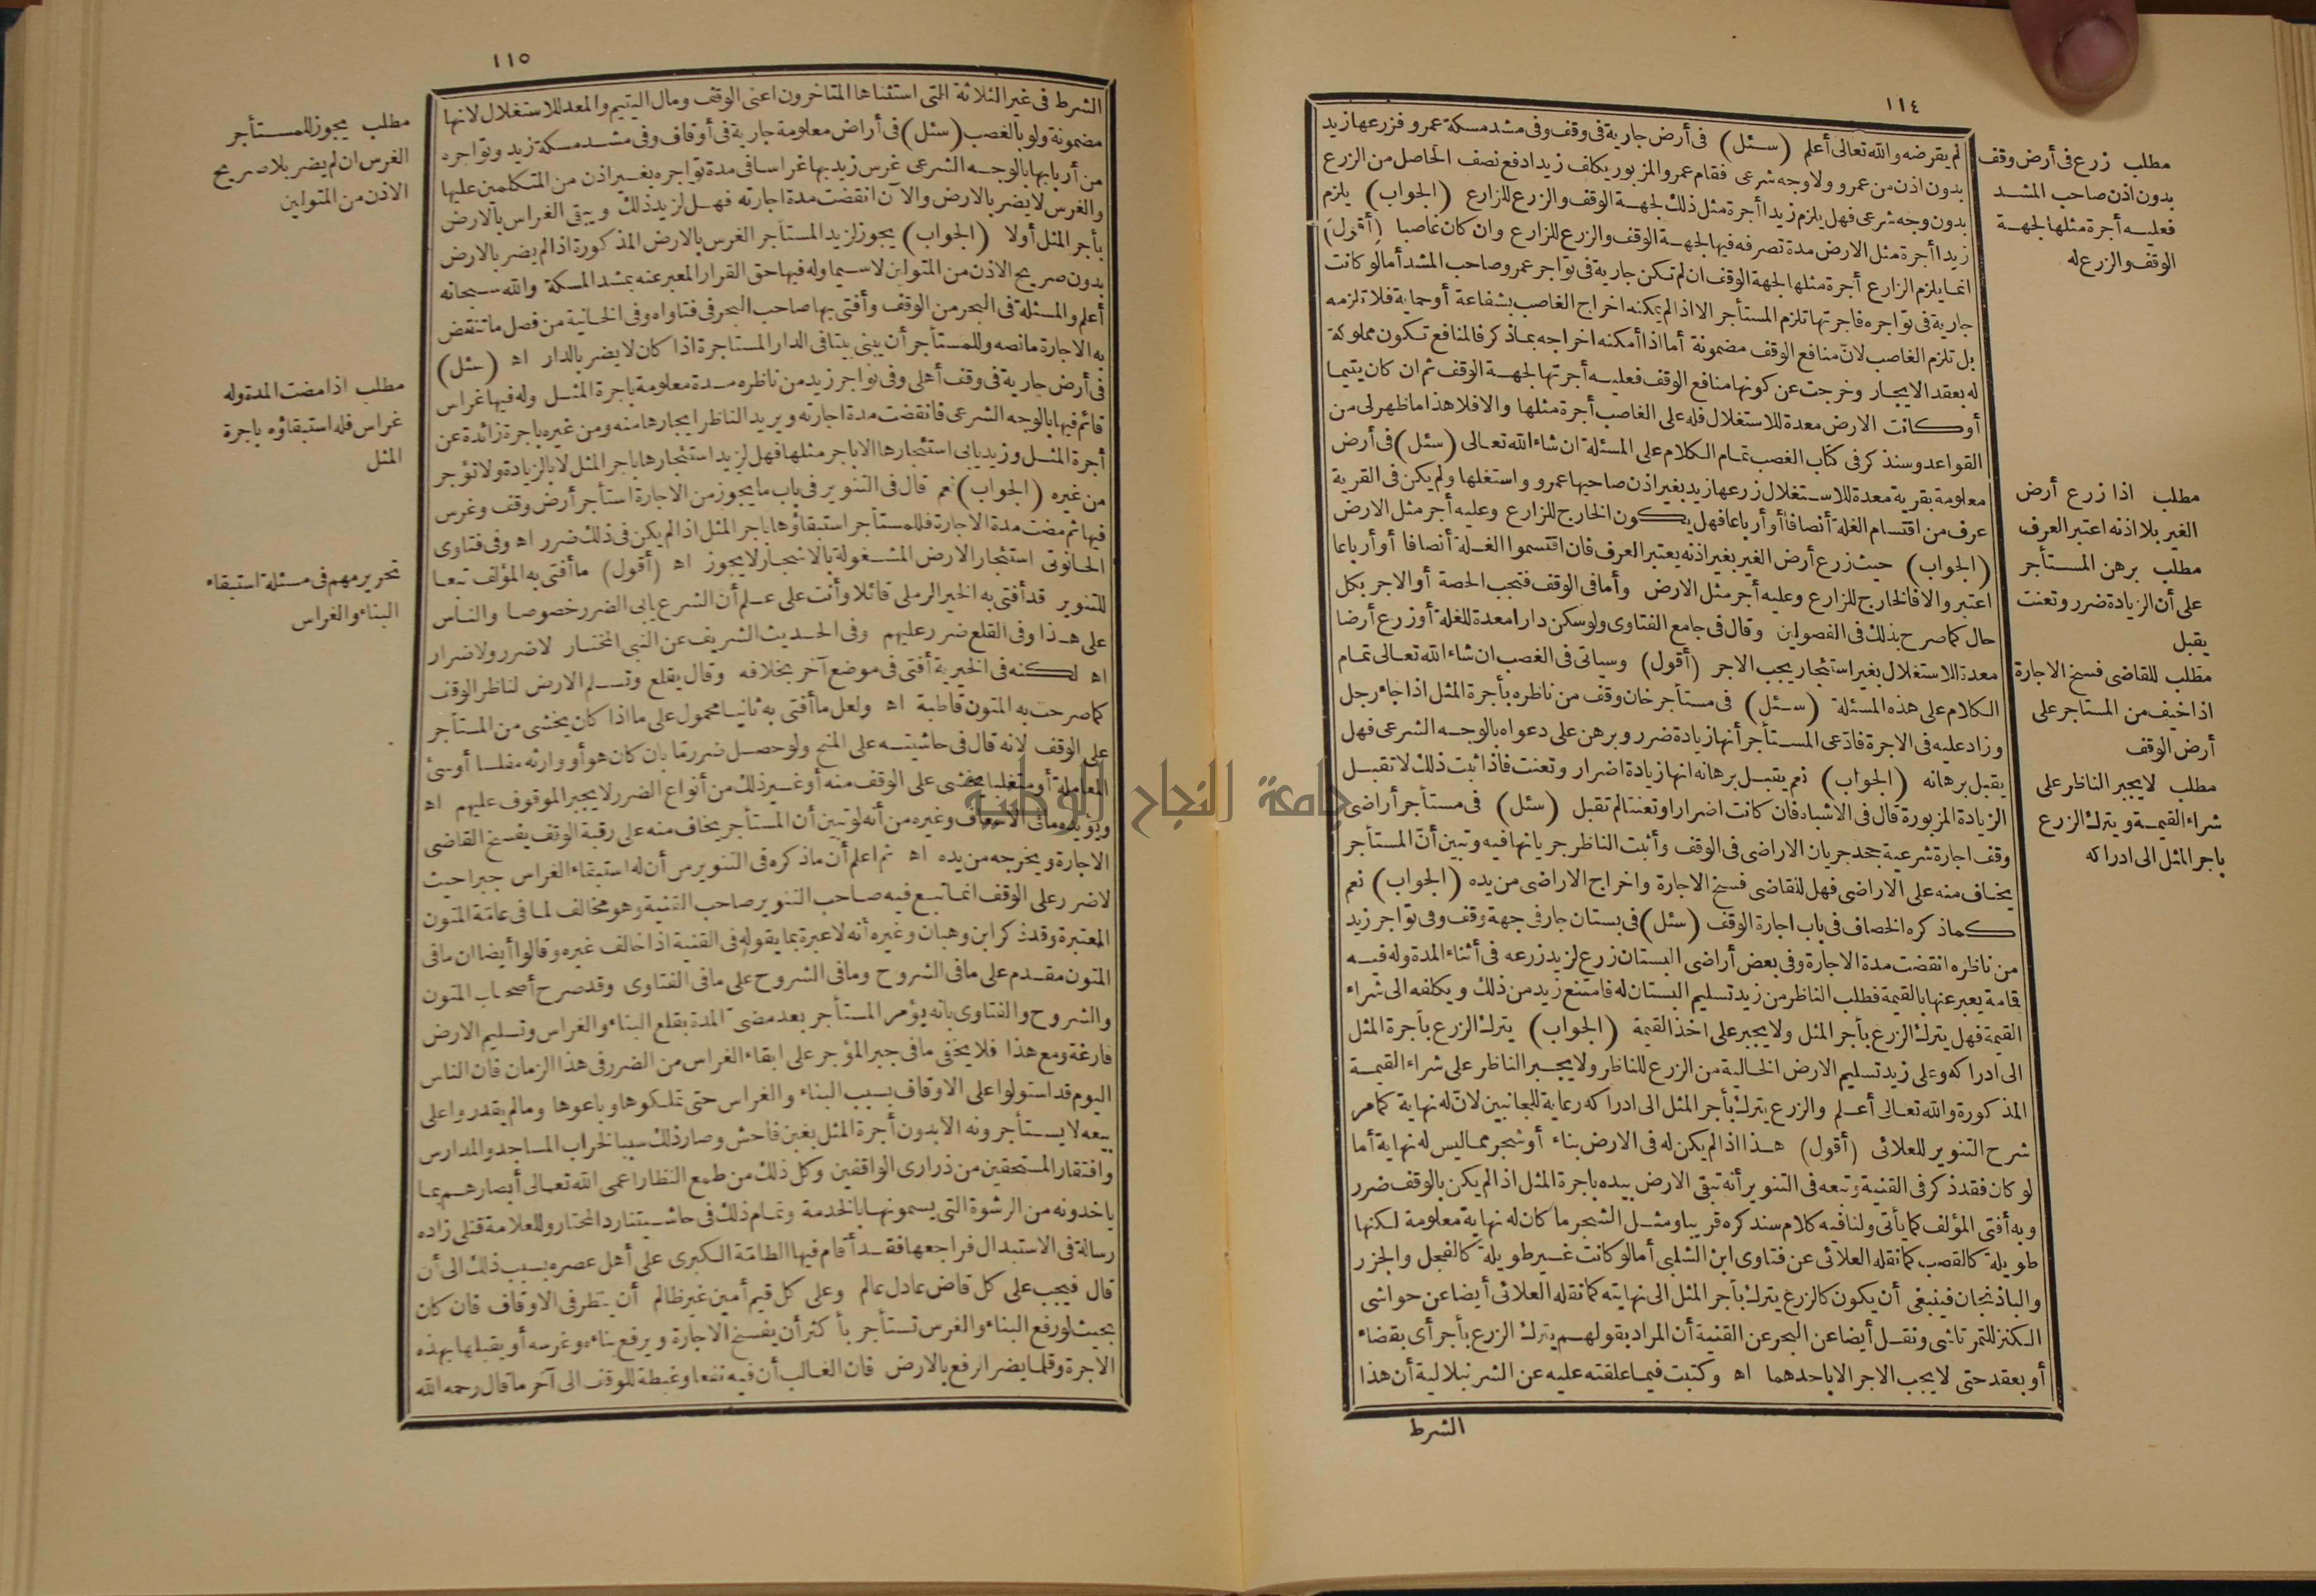 ١١٤
لم يقرضه والله تعالى أعلم (سئل) فى أرض جارية فى وقف وفى مشد مسكة عمرو فزرعها زيد
بدون اذن من عمرو ولا وجه شرعى فقام عمرو المزبور يكلف زيدا دفع نصف الحاصل من الزرع
بدون وجه شرعى فهل يلزم زيدا أجرة مثل ذلك لجهة الوقف والزرع للزارع (الجواب) يلزم
زيدا أجرة مثل الارض مدة تصرفه فيها لجهة الوقف والزرع للزارع وان كان غاصبا (أقول)
انما يلزم الزارع أجرة مثلها لجهة الوقف ان لم تكن جارية فى تواجر عمرو صاحب المشد أما لو كانت
جارية فى تواجره فاجرتها تلزم المستأجر الا اذا لم يمكنه اخراج الغاصب بشفاعة أو حماية فلا تلزمه
بل تلزم الغاصب لانّ منافع الوقف مضمونة أما اذا أمكنه اخراجه بماذ كر فالمنافع تكون مملوكة
له بعقد الايجار وخرجت عن كونها منافع الوقف فعليه أجرتها لجهة الوقف ثم ان كان يتيما
أو كانت الارض معدة للاستغلال فله على الغاصب أجرة مثلها والا فلا هذا ما ظهر لى من
القواعد وسنذكر فى كتاب الغصب تمام الكلام على المسئلة ان شاء الله تعالى (سئل) فى أرض
معلومة بقرية معدة للاستغلال زرعها زيد بغير اذن صاحبها عمرو واستغلها ولم يكن فى القرية
عرف من اقتسام الغلة أنصافا أو أرباعا فهل يكون الخارج للزارع وعليه أجر مثل الارض
(الجواب) حيث زرع أرض الغير بغير اذنه يعتبر العرف فان اقتسموا الغلة أنصافا أو أرباعا
اعتبر والا فالخارج للزارع وعليه أجر مثل الارض وأما فى الوقف فتجب الحصة أو الاجر بكل
حال كما صرح بذلك فى الفصولين وقال فى جامع الفتاوى ولو سكن دارا معدة للغلة أو زرع أرضا
معدة للاستغلال بغير استئجار يجب الاجر (أقول) وسيأتى فى الغصب ان شاء الله تعالى تمام
الكلام على هذه المسئلة (سئل) فى مستأجر خان وقف من ناظره بأجرة المثل اذا جاء رجل
وزاد عليه فى الاجرة فادّعى المستأجر أنها زيادة ضرر وبرهن على دعواه بالوجه الشرعى فهل
يقبل برهانه (الجواب) نعم يقبل برهانه انها زيادة اضرار وتعنت فاذا ثبت ذلك لا تقبل
الزيادة المزبورة قال فى الاشباه فان كانت اضرارا وتعنتا لم تقبل (سئل) فى مستأجر أراضى
وقف اجارة شرعية جحد جريان الاراضى فى الوقف وأثبت الناظر جريانها فيه وتبين أنّ المستأجر
يخاف منه على الاراضى فهل للقاضى فسخ الاجارة واخراج الاراضى من يده (الجواب) نعم
كماذكره الخصاف فى باب اجارة الوقف (سئل) فى بستان جار فى جهة وقف وفى تواجر زيد
من ناظره انقضت مدة الاجارة وفى بعض أراضى البستان زرع لزيد زرعه فى أثناء المدة وله فيه
قامة يعبر عنها بالقيمة فطلب الناظر من زيد تسليم البستان له فامتنع زيد من ذلك ويكلفه الى شراء
القيمة فهل يترك الزرع بأجر المثل ولا يجبر على اخذ القيمة (الجواب) يترك الزرع بأجرة المثل
الى ادراكه وعلى زيد تسليم الارض الخالية من الزرع للناظر ولا يجبر الناظر على شراء القيمة
المذكورة والله تعالى أعلم والزرع يترك بأجر المثل الى ادراكه رعاية للجانبين لانّ له نهاية كما مر
شرح التنوير للعلائى (أقول) هذا اذا لم يكن له فى الارض بناء أو شجر مما ليس له نهاية أما
لو كان فقد ذكر فى القنية وتبعه فى التنوير أنه تبقى الارض بيده باجرة المثل اذا لم يكن بالوقف ضرر
وبه أفتى المؤلف كما يأتى ولنا فيه كلام سنذكره قريبا ومثل الشجر ما كان له نهاية معلومة لكنها
طويلة كالقصب كما نقله العلائى عن فتاوى ابن الشلبى أما لو كانت غير طويلة كالفجل والجزر
والباذنجان فينبغى أن يكون كالزرع يترك بأجر المثل الى نهايته كما نقله العلائى أيضا عن حواشى
الكنز للتمرتاشى ونقل أيضا عن البحر عن القنية أن المراد بقولهم يترك الزرع بأجر أى بقضاء
أو بعقد حتى لا يجب الاجر الا باحدهما اه وكتبت فيما علقته عليه عن الشرنبلالية أن هذا
الشرط
مطلب زرع فى أرض وقف
بدون اذن صاحب المشد
فعليه أجرة مثلها لجهة
الوقف والزرع له
مطلب اذا زرع أرض
الغير بلا اذنه اعتبر العرف
مطلب برهن المستأجر
على أن الزيادة ضرر وتعنت
يقبل
مطلب للقاضى فسخ الاجارة
اذا خيف من المستاجر على
أرض الوقف
مطلب لا يجبر الناظر على
شراء القيمة ويترك الزرع
باجر المثل الى ادراكه
١١٥
الشرط فى غير الثلاثة التى استثناها المتاخرون اعنى الوقف ومال اليتيم والمعد للاستغلال لانها
مضمونة ولو بالغصب (سئل) فى أراض معلومة جارية فى أوقاف وفى مشد مسكة زيد وتواجره
من أربابها بالوجه الشرعى غرس زيد بها غراسا فى مدة تواجره بغير اذن من المتكلمين عليها
والغرس لا يضر بالارض والآن انقضت مدة اجارته فهل لزيد ذلك ويبقى الغراس بالارض
بأجر المثل أولا (الجواب) يجوز لزيد المستأجر الغرس بالارض المذكورة اذا لم يضر بالارض
بدون صريح الاذن من المتولين لاسيما وله فيها حق القرار المعبر عنه بمشد المسكة والله سبحانه
أعلم والمسئلة فى البحر من الوقف وأفتى بها صاحب البحر فى فتاواه وفى الخانية من فصل ما تنقض
به الاجارة ما نصه وللمستأجر أن يبنى بيتا فى الدار المستاجرة اذا كان لا يضر بالدار اه (سئل)
فى أرض جارية فى وقف أهلى وفى تواجر زيد من ناظره مدة معلومة باجرة المثل وله فيها غراس
قائم فيها بالوجه الشرعى فانقضت مدة اجارته ويريد الناظر ايجارها منه ومن غيره باجرة زائدة عن
أجرة المثل وزيد يابى استئجارها الا باجر مثلها فهل لزيد استئجارها باجر المثل لا بالزيادة ولا تؤجر
من غيره (الجواب) نعم قال فى التنوير فى باب ما يجوز من الاجارة استأجر أرض وقف وغرس
فيها ثم مضت مدة الاجارة فللمستأجر استبقاؤها باجر المثل اذا لم يكن فى ذلك ضرر اه وفى فتاوى
الحانوتى استئجار الارض المشغولة بالاشجار لا يجوز اه (أقول) ما أفتى به المؤلف تبعا
للتنوير قد أفتى به الخير الرملى قائلا وأنت على علم أن الشرع يابى الضرر خصوصا والناس
على هذا وفى القلع ضرر عليهم وفى الحديث الشريف عن النبى المختار لا ضرر ولا ضرار
اه لكنه فى الخيرية أفتى فى موضع آخر بخلافه وقال يقلع وتسلم الارض لناظر الوقف
كما صرحت به المتون قاطبة اه ولعل ما أفتى به ثانيا محمول على ما اذا كان يخشى من المستأجر
على الوقف لانه قال فى حاشيته على المنح ولو حصل ضرر ما بان كان هو أو وارثه مفلسا أوسئ
المعاملة أو متغلبا يخشى على الوقف منه أو غير ذلك من أنواع الضرر لا يجبر الموقوف عليهم اه
ويؤيده ما فى الاسعاف وغيره من أنه لو تبين أن المستأجر يخاف منه على رقبة الوقف يفسخ القاضى
الاجارة ويخرجه من يده اه ثم اعلم أن ما ذكره فى التنوير من أن له استبقاء الغراس جبرا حيث
لا ضرر على الوقف انما تبع فيه صاحب التنوير صاحب القنية وهو مخالف لما فى عامّة المتون
المعتبرة وقد ذكر ابن وهبان وغيره أنه لا عبرة بما يقوله فى القنية اذا خالف غيره وقالوا أيضا ان ما فى
المتون مقدم على ما فى الشروح وما فى الشروح على ما فى الفتاوى وقد صرح أصحاب المتون
والشروح والفتاوى بانه يؤمر المستأجر بعد مضىّ المدة بقلع البناء والغراس وتسليم الارض
فارغة ومع هذا فلا يخفى ما فى جبر المؤجر على ابقاء الغراس من الضرر فى هذا الزمان فان الناس
اليوم قد استولوا على الاوقاف بسبب البناء والغراس حتى تملكوها وباعوها وما لم يقدروا على
بيعه لا يستأجرونه الا بدون أجرة المثل بغبن فاحش وصار ذلك سببا لخراب المساجد والمدارس
وافتقار المستحقين من ذرارى الواقفين وكل ذلك من طمع النظار اعمى الله تعالى أبصارهم بما
ياخذونه من الرشوة التى يسمونها بالخدمة وتمام ذلك فى حاشيتنا رد المحتار وللعلامة قنلى زاده
رسالة فى الاستبدال فراجعها فقد أقام فيها الطامّة الكبرى على أهل عصره بسبب ذلك الى أن
قال فيجب على كل قاض عادل عالم وعلى كل قيم أمين غير ظالم أن ينظر فى الاوقاف فان كان
بحيث لو رفع البناء والغرس تستأجر بأكثر أن يفسخ الاجارة ويرفع بناءه وغرسه أو يقبلها بهذه
الاجرة وقلما يضر الرفع بالارض فان الغالب أن فيه نفعا وغبطة للوقف الى آخر ما قال رحمه الله
مطلب يجوز للمستأجر
الغرس ان لم يضر بلا صريح
الاذن من المتولين
مطلب اذا مضت المدة وله
غراس فله استبقاؤه باجرة
المثل
تحرير مهم فى مسئلة استبقاء
البناء والغراس
جامعة النجاح الوطنية